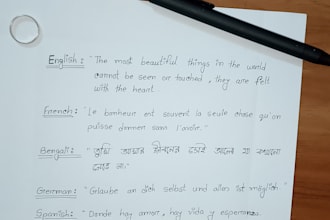 English : "The most beautiful things in the world
cannot be seen or touched, they are felt
with the heart.
French : "Le bonheur est souvent la seule chose qu'on
puisse donner sans l'avoir."
Bengali : "তুমি আমার জীবনের
না."
German : "Glaube an dich selbst und alles ist möglich."
Spanish : "Donde hay amor, hay vida y esperanza.